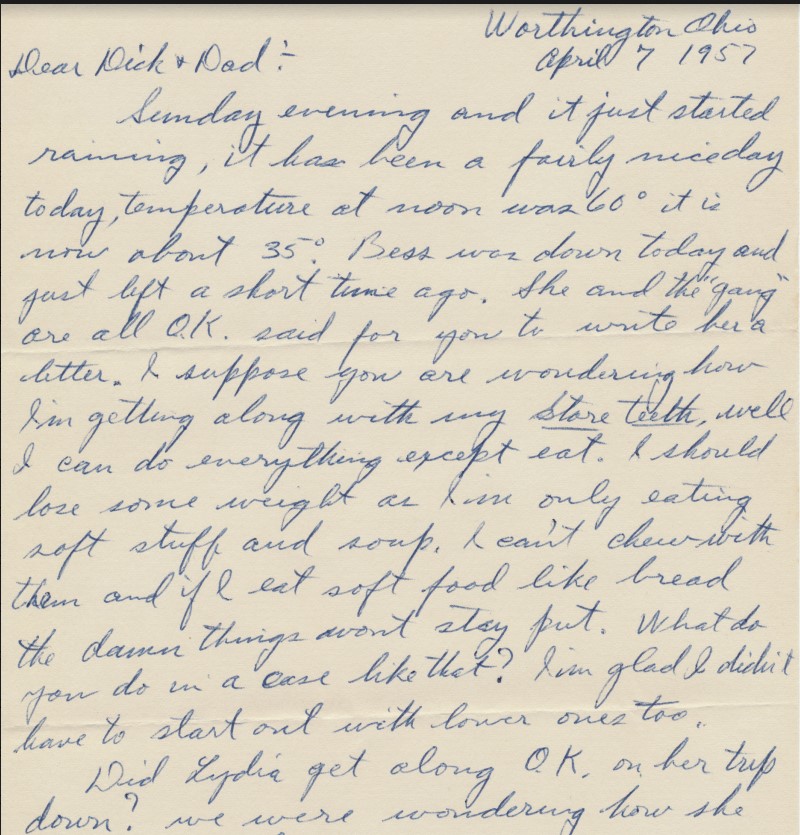 Worthington Ohio
April 7 1957
Dear Dick & Dad :-
Sunday evening and it just started
raining, it has been a fairly nice day
today, temperature at noon was 60° it is
now about 35°. Bess was down today and
just left a short time ago. She and the "gang"
are all O.K. said for you to write her a
letter. I suppose you are wondering how
I'm getting along with my store teeth, well
I can do everything except eat. I should
lose some weight as I'm only eating
soft stuff and soup. I can't chew with
them and if I eat soft food like bread
the damn things wont stay put. What do
you do in a case like that? I'm glad I didn't
have to start out with lower ones too.
Did Lydia get along O.K. on her trip
down? we were wondering how she